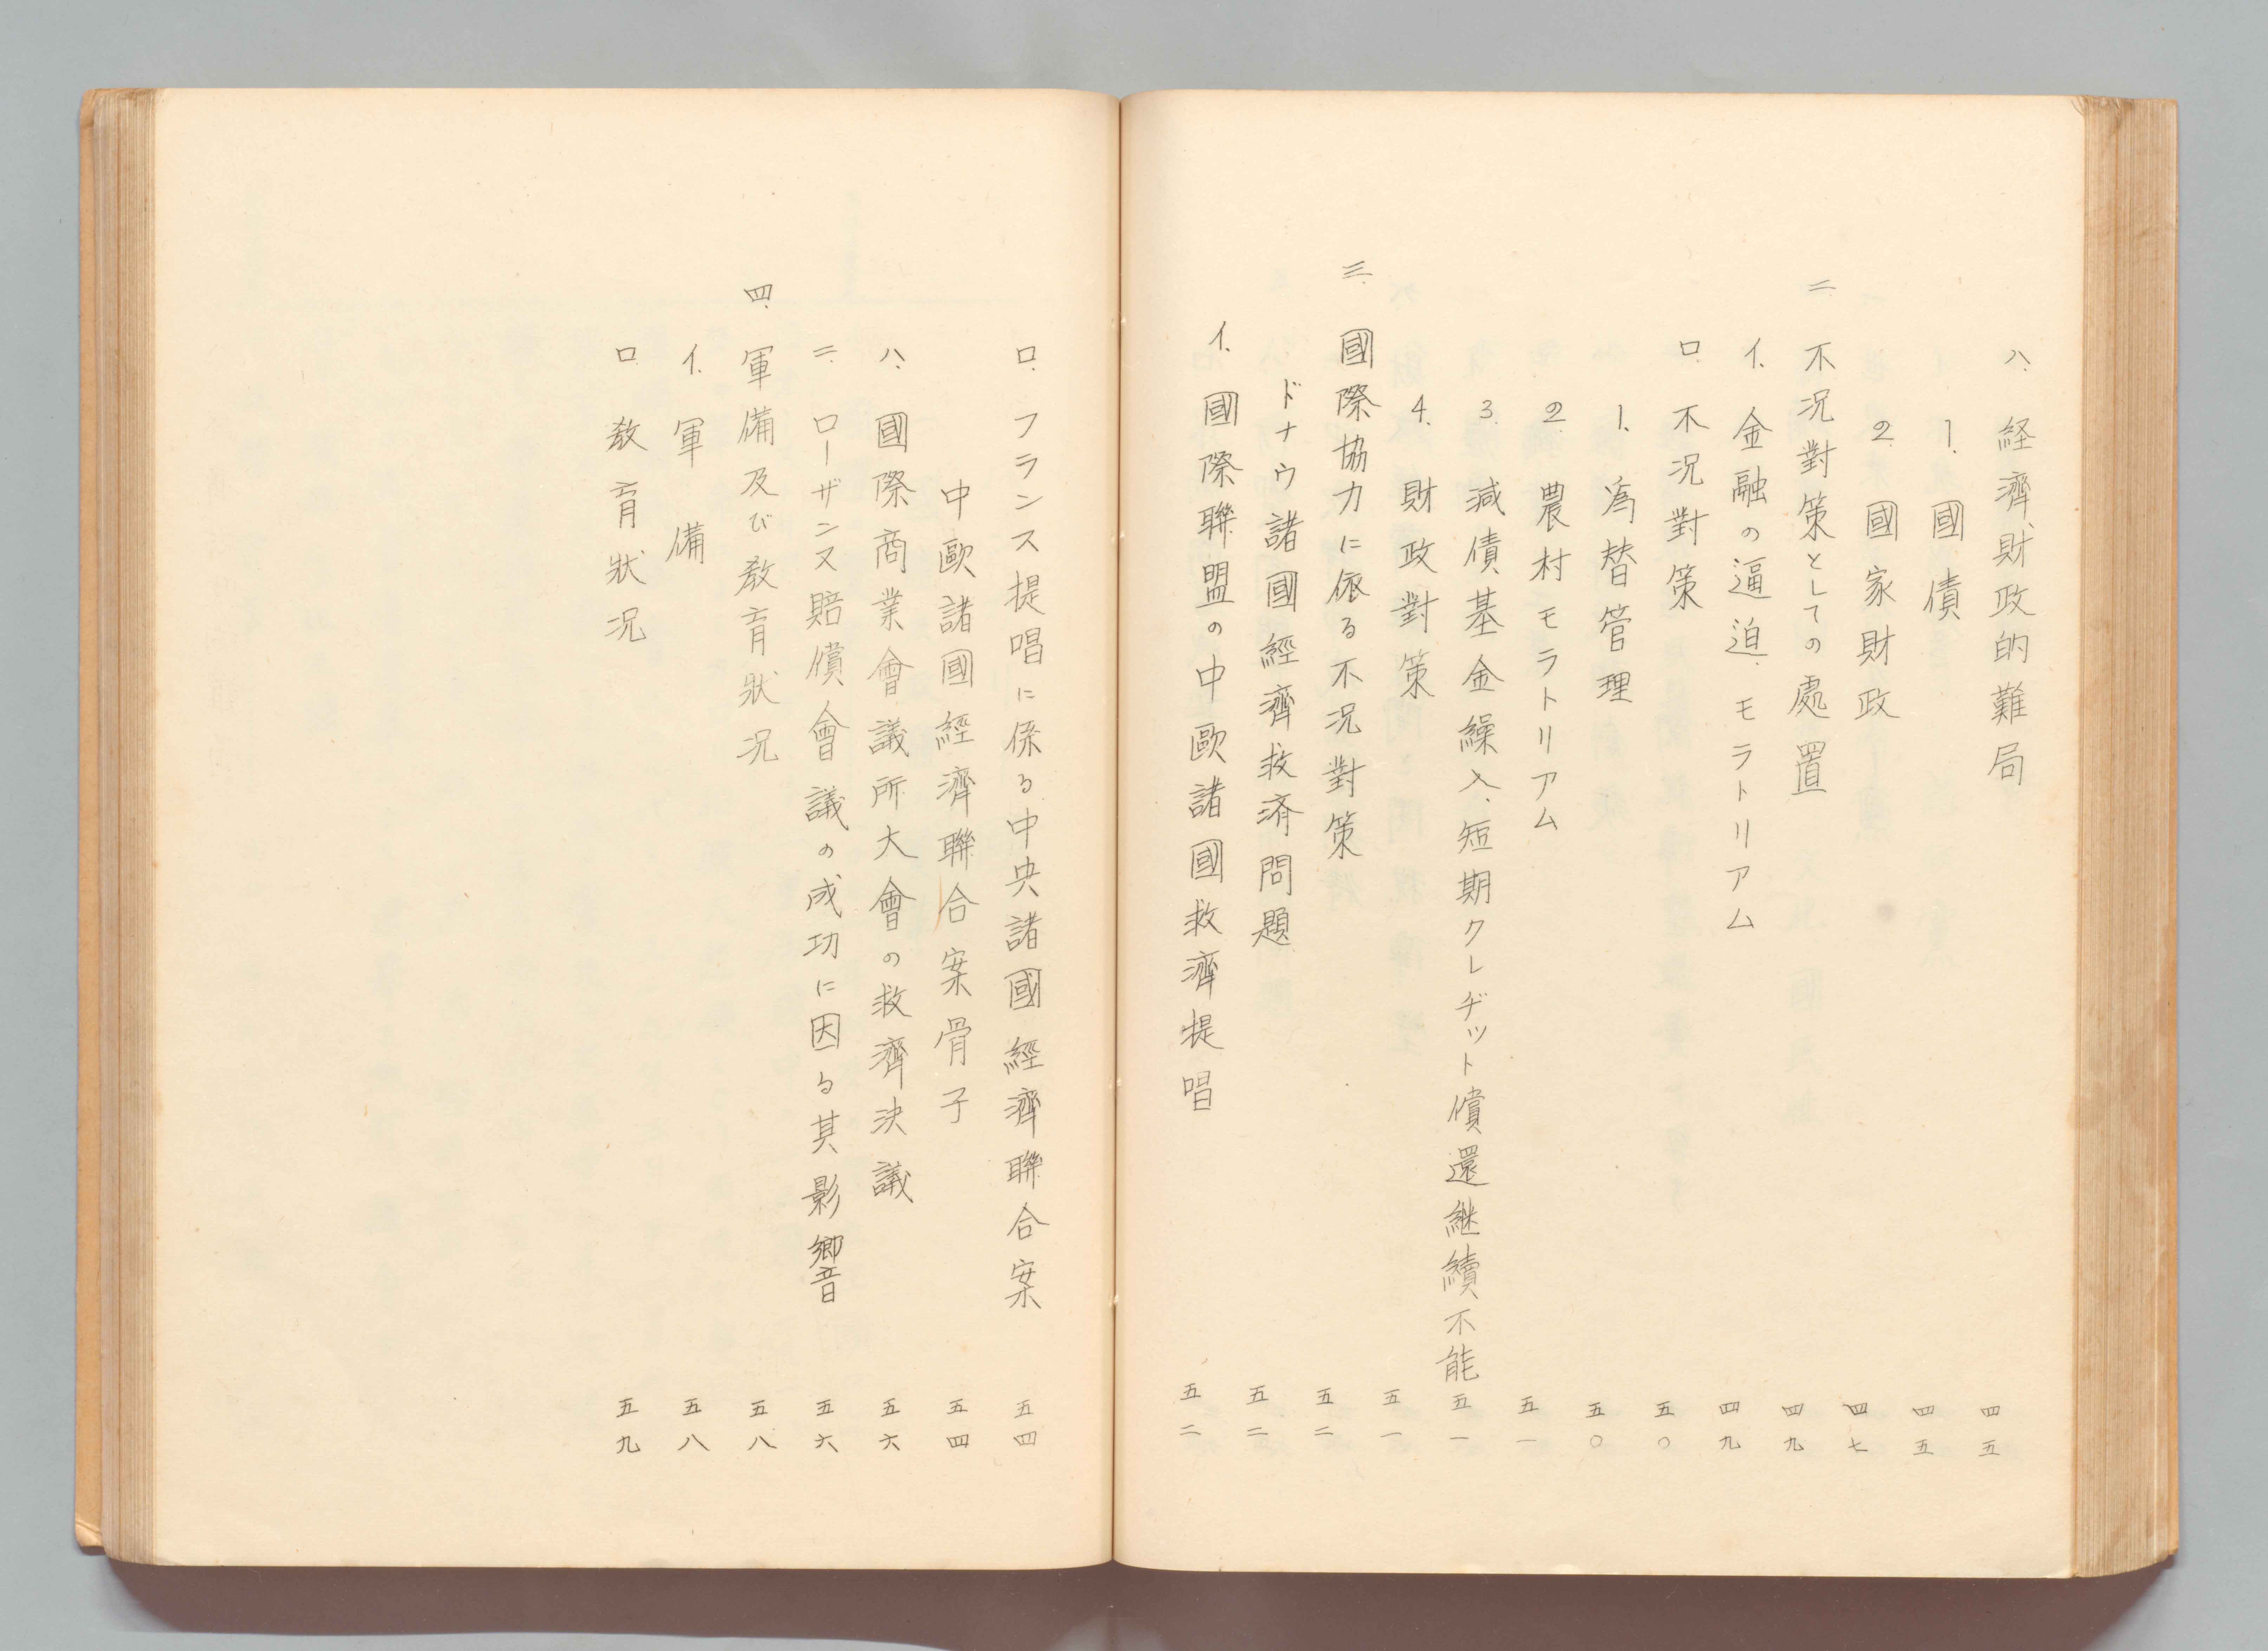 ハ、経濟、財政的難局 四五
1、國債 四五
2、國家財政 四七
二、不況對策としての處置 四九
イ、金融の逼迫、モラトリアム 四九
ロ、不況對策 五〇
1、爲替管理 五〇
2、農村モラトリアム 五一
3、減債基金繰入、短期クレヂット償還継續不能 五一
4、財政對策 五一
三、國際協力に依る不況對策 五二
ドナウ諸國經濟救済問題 五二
イ、國際聯盟の中歐諸國救濟提唱 五二
ロ、フランス提唱に係る中央諸國經濟聯合案 五四
中歐諸國經濟聯合案骨子 五四
ハ、國際商業會議所大會の救濟決議 五六
ニ、ローザンヌ賠償會議の成功に因る其影響 五六
四、軍備及び敎育狀況 五八
イ、軍備 五八
ロ、敎育狀況 五九